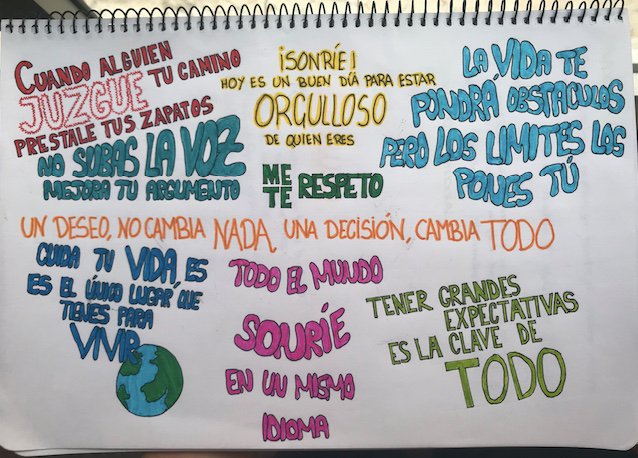 CUANDO ALGUIEN
JUZGUE TU CAMINO
PRESTALE TUS ZAPATOS
¡SONRÍE!
HOY ES UN BUEN DÍA PARA ESTAR
ORGULLOSO
DE QUIEN ERES
LA VIDA TE
PONDRÁ OBSTACULOS
PERO LOS LIMITES LOS
PONES TÚ
NO SUBAS LA VOZ
MEJORA TU ARGUMENTO
ME
TE RESPETO
UN DESEO, NO CAMBIA NADA, UNA DECISIÓN, CAMBIA TODO
CUIDA TU VIDA, ES
ES EL ÚNICO LUGAR QUE
TIENES PARA
VIVIR
TODO EL MUNDO
SONRÍE
EN UN MISMO
IDIOMA
TENER GRANDES
EXPECTATIVAS
ES LA CLAVE DE
TODO